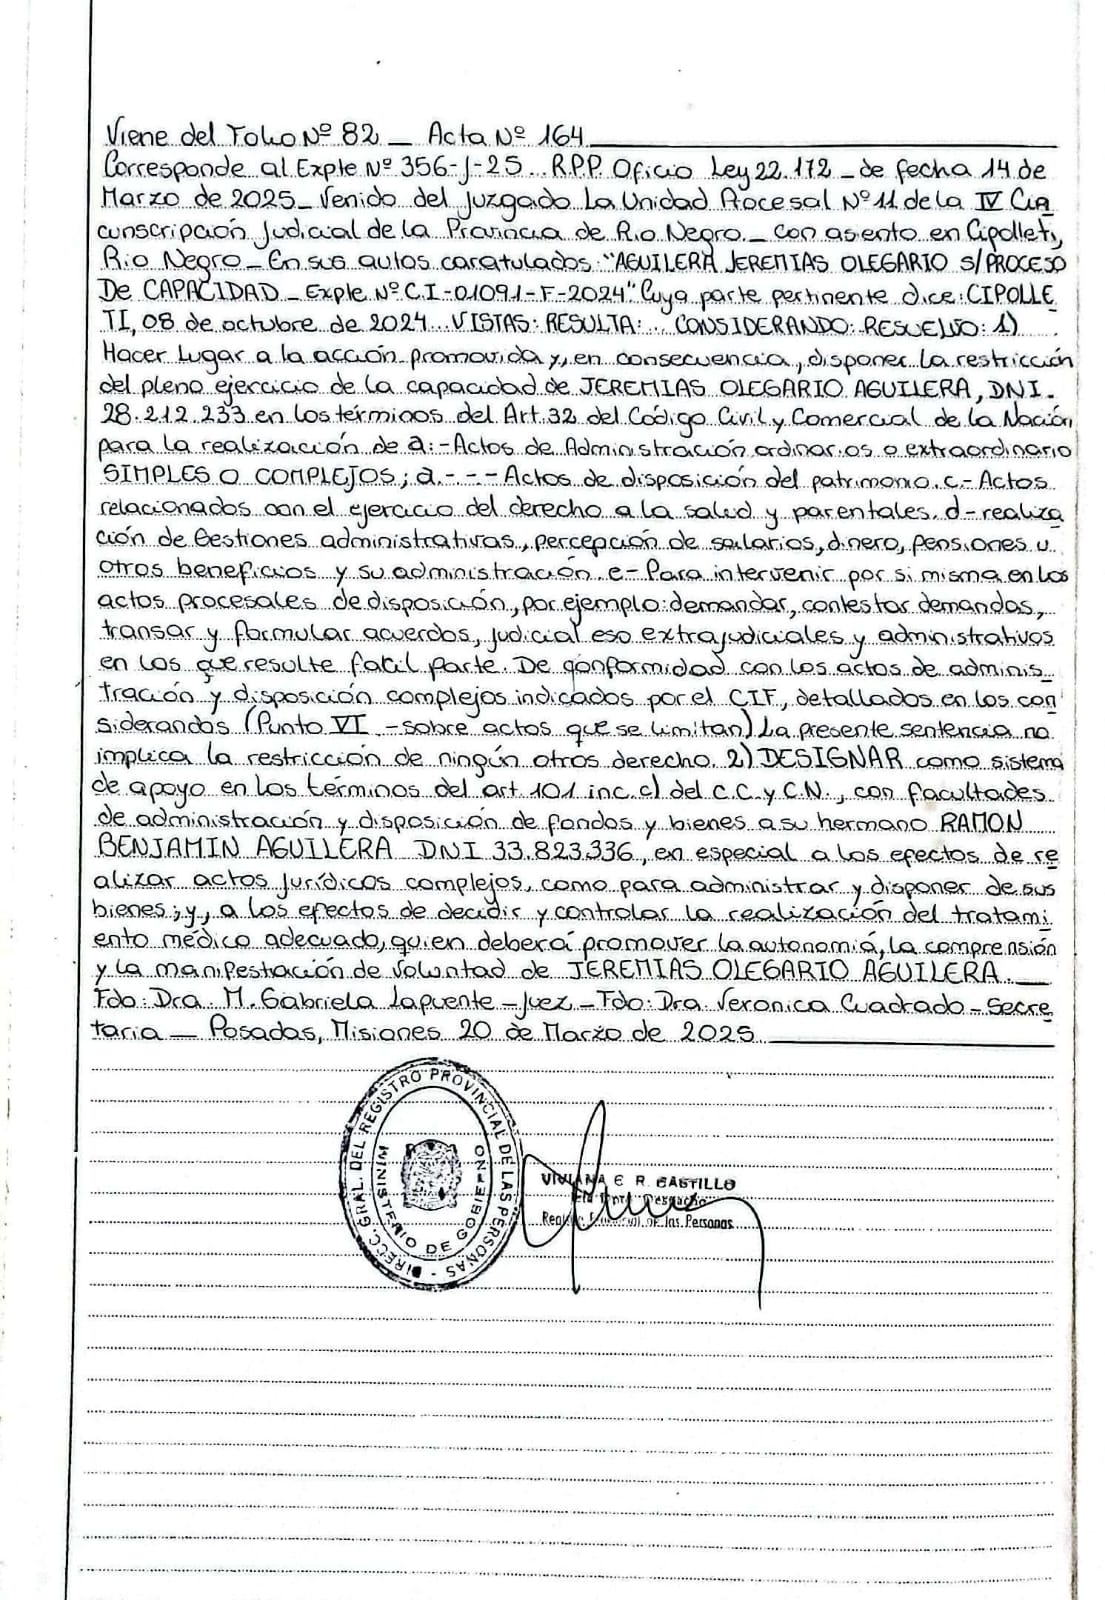 Viene del Folio Nº 82 _ Acta Nº 164
Corresponde al Expte Nº 356-J-25... R.P.P. Oficio Ley 22.172 _ de fecha 14 de
Marzo de 2025_ Venido del Juzgado La Unidad Procesal Nº 11 de la IV Cir
cunscripción Judicial de la Provincia de Rio Negro._ con asiento en Cipolleti,
Rio Negro_ En sus autos caratulados: "AGUILERA JEREMIAS OLEGARIO S/PROCESO
De CAPACIDAD _ Expte Nº C.I-01091-F-2024". Cuya parte pertinente dice: CIPOLLE
TI, 08 de octubre de 2024... VISTAS: RESULTA:... CONSIDERANDO: RESUELVO: 1)
Hacer Lugar a la acción promovida y, en consecuencia, disponer la restricción
del pleno ejercicio de la capacidad de JEREMIAS OLEGARIO AGUILERA, DNI.
28.212.233 en los términos del Art. 32 del Código Civil y Comercial de la Nación
para la realización de a:-Actos de Administración ordinarios o extraordinario
SIMPLES O COMPLEJOS; a.-.-.- Actos de disposición del patrimonio. c.- Actos
relacionados con el ejercicio del derecho a la salud y parentales. d- realiza
ción de Gestiones administrativas, percepción de salarios, dinero, pensiones u
otros beneficios y su administración. e- Para intervenir por si misma en los
actos procesales de disposición, por ejemplo: demandar, contestar demandas,
transar y formular acuerdos, judicial eso extrajudiciales y administrativos
en los que resulte fatil parte. De conformidad con los actos de adminis
tración y disposición complejos indicados por el CIF, detallados en los con
siderandos (Punto VI -sobre actos que se limitan) La presente sentencia no
implica la restricción de ningún otros derecho. 2) DESIGNAR como sistema
de apoyo en los términos del art. 101 inc. c) del C.C. y C.N., con facultades
de administración y disposición de fondos y bienes a su hermano RAMON
BENJAMIN AGUILERA DNI 33.823.336, en especial a los efectos de re
alizar actos Jurídicos complejos, como para administrar y disponer de sus
bienes; y, a los efectos de decidir y controlar la realización del tratami
ento médico adecuado, quien deberá promover la autonomiá, la comprensión
y la manifestiación de voluntad de JEREMIAS OLEGARIO AGUILERA.
Fdo: Dra. M. Gabriela Lapuente - Juez - Fdo: Dra. Veronica Cuadrado - Secre
taria _ Posadas, Misiones 20 de Marzo de 2025
DIRECC. GRAL. DEL REGISTRO PROVINCIAL DE LAS PERSONAS
MINISTERIO DE GOBIERNO
VIVIANA E R. CASTILLO
Despacho
Registro Provincial de las Personas